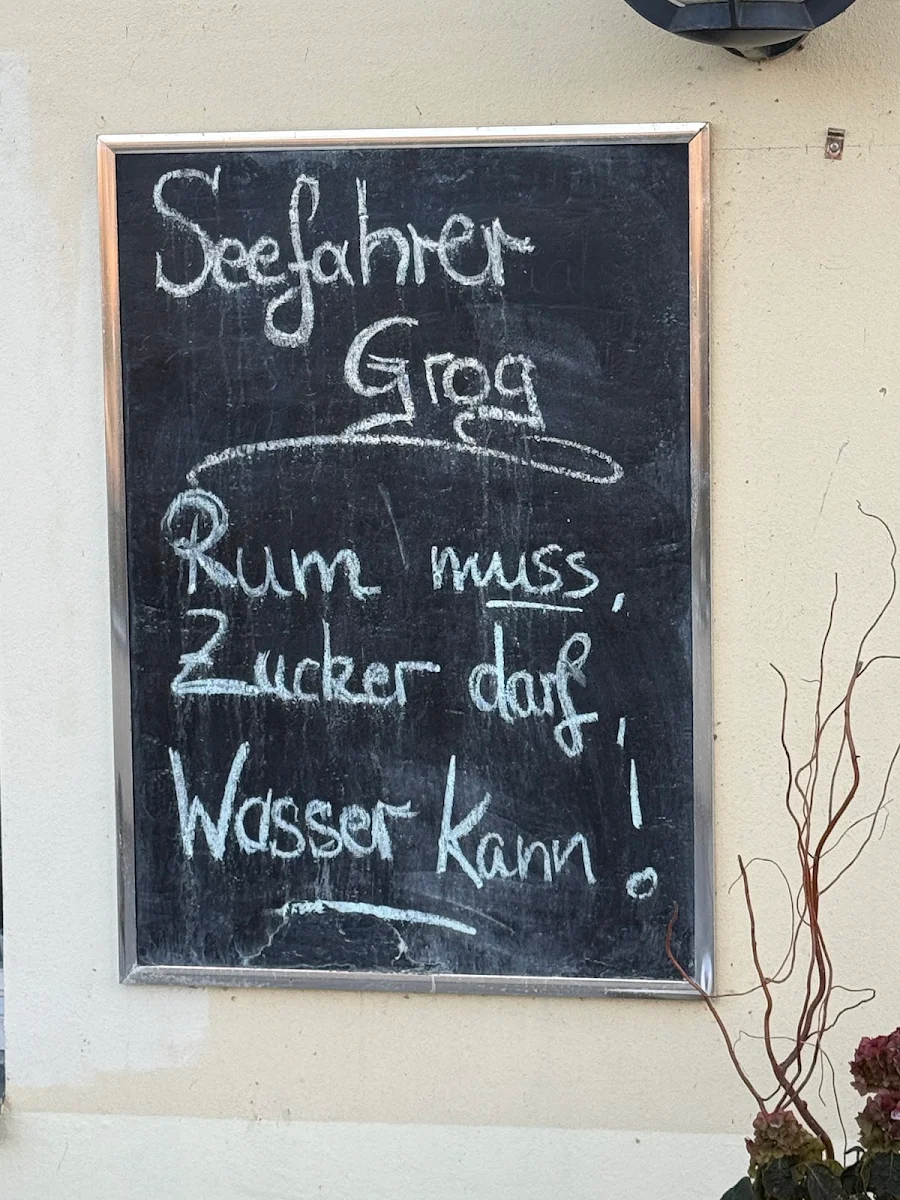 Seefahrer
Grog
Rum muss,
Zucker darf,
Wasser kann!